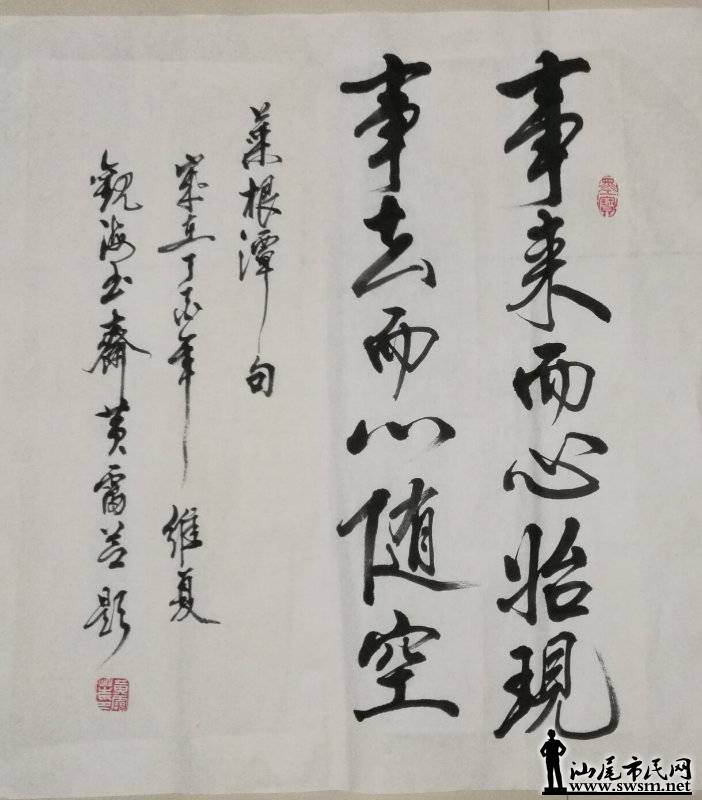 事来而心怡現
事去而心随空
菜根潭句
歲在丁酉年 维夏
觀海书齋黄雷益題
墨寶
汕尾市民网
www.swsm.net